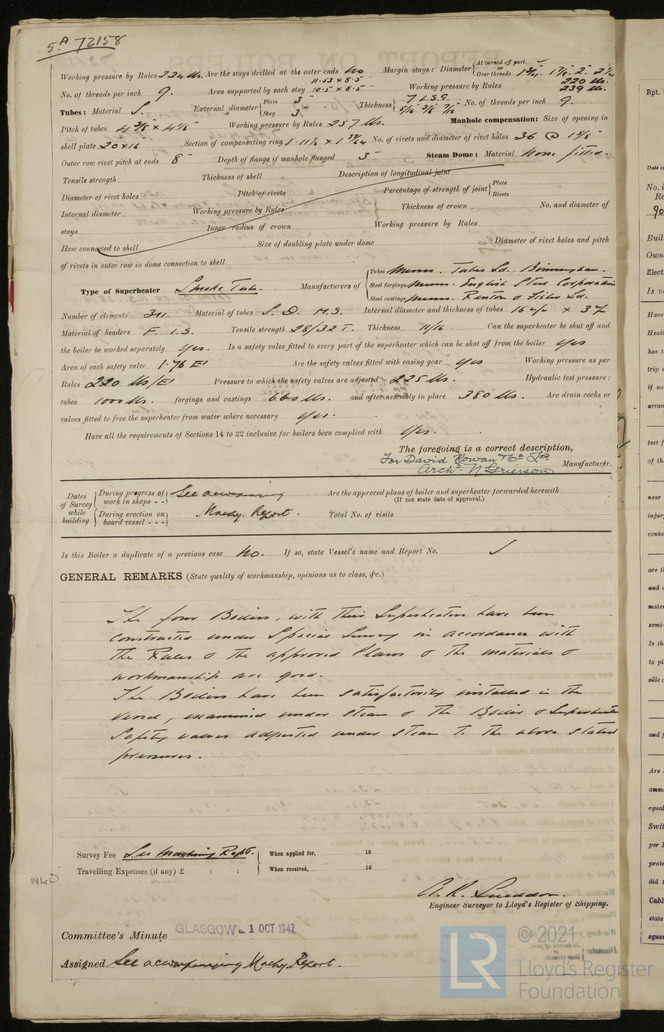 5A 72158
Working pressure by Rules 224 lbs. Are the stays drilled at the outer ends No Margin stays: Diameter { At turned off part, or Over threads 1 3/4. 1 7/8. 2. 2 1/4
No. of threads per inch 9. Area supported by each stay 11·53 × 8·5 10·5 × 8·5 Working pressure by Rules 220 lbs. 239 lbs.
Tubes: Material S. External diameter { Plain 3" Stay 3" Thickness { 7 L.S.G. 5/16 3/8 7/16 No. of threads per inch 9.
Pitch of tubes 4 3/8 × 4 1/8 Working pressure by Rules 257 lbs. Manhole compensation: Size of opening in
shell plate 20 × 16 Section of compensating ring No. of rivets and diameter of rivet holes 36 @
Outer row rivet pitch at ends 8" Depth of flange if manhole flanged 3" Steam Dome: Material None fitted.
Tensile strength Thickness of shell Description of longitudinal joint
Diameter of rivet holes Pitch of rivets Percentage of strength of joint { Plate Rivets
Internal diameter Working pressure by Rules Thickness of crown No. and diameter of
stays Inner radius of crown Working pressure by Rules
How connected to shell Size of doubling plate under dome Diameter of rivet holes and pitch
of rivets in outer row in dome connection to shell
Type of Superheater Smoke Tube. Manufacturers of { Tubes Messrs. Tubes Ld. Birmingham.
Steel forgings Messrs. English Steel Corporation
Steel castings Messrs. Kenton & Fisher Ld.
Number of elements 341 Material of tubes S. D. M.S. Internal diameter and thickness of tubes 16 m/m × 3 m/m
Material of headers F. I. S. Tensile strength 28/32 T. Thickness 11/16 Can the superheater be shut off and
the boiler be worked separately Yes. Is a safety valve fitted to every part of the superheater which can be shut off from the boiler Yes
Area of each safety valve 1·76 Are the safety valves fitted with easing gear Yes Working pressure as per
Rules 220 lbs/ Pressure to which the safety valves are adjusted 225 lbs. Hydraulic test pressure:
tubes 1000 lbs. forgings and castings 660 lbs. and after assembly in place 380 lbs. Are drain cocks or
valves fitted to free the superheater from water where necessary Yes.
Have all the requirements of Sections 14 to 22 inclusive for boilers been complied with Yes.
The foregoing is a correct description,
For David Rowan & Co Ld.
Archd. N Grierson Manufacturer.
Dates of Survey while building { During progress of work in shops - - } See accompanying Are the approved plans of boiler and superheater forwarded herewith (If not state date of approval.)
During erection on board vessel - - - Machy. Report. Total No. of visits
Is this Boiler a duplicate of a previous case No. If so, state Vessel's name and Report No.
GENERAL REMARKS (State quality of workmanship, opinions as to class, &c.)
The four Boilers, with their Superheaters have been
constructed under Special Survey in accordance with
the Rules & the approved Plans & the materials &
workmanship are good.
The Boilers have been satisfactorily installed in the
vessel, examined under steam & the Boiler & Superheater
Safety valves adjusted under steam to the above stated
pressures.
Survey Fee See Machinery Rept. When applied for, 19
Travelling Expenses (if any) £ : : When received, 19
Engineer Surveyor to Lloyd's Register of Shipping.
Committee's Minute GLASGOW 1 OCT 1947
Assigned See accompanying Machy. Report.
LR
© 2021
Lloyd's Register
Foundation